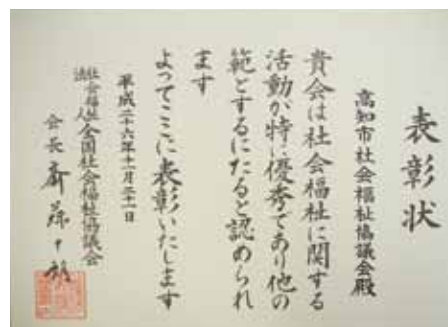 表彰状
高知市社会福祉協議会殿
貴会は社会福祉に関する
活動が特に優秀であり他の
範とするにたると認められ
ます
よってここに表彰いたします
平成二十六年十一月二十一日
社会福祉法人全国社会福祉協議会
会長 斎藤十朗